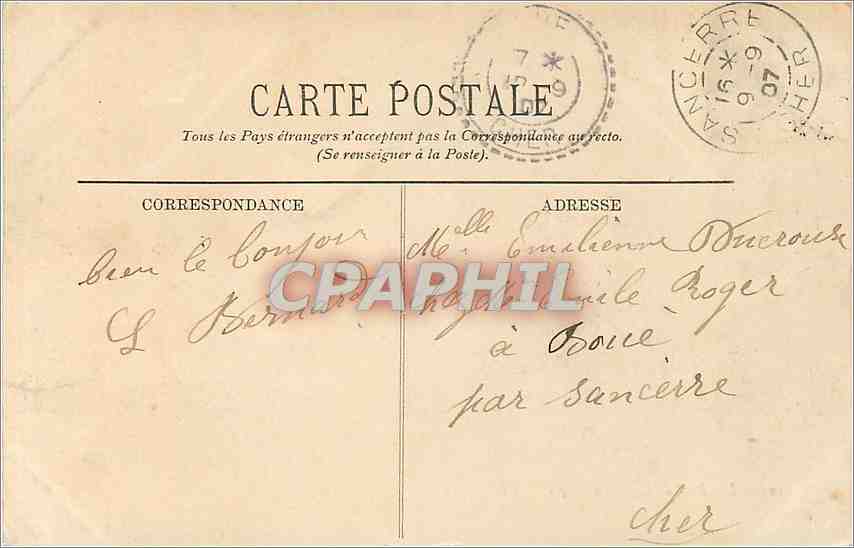 CARTE POSTALE
Tous les Pays étrangers n'acceptent pas la Correspondance au recto.
(Se renseigner à la Poste).
SANCERRE
CHER
16 *
9 - 9
07
7 *
9
CHER
CORRESPONDANCE
bien le bonjour
L Bernard
ADRESSE
Melle Emilienne Ducroux
Emile Roger
à Boué
par Sancerre
Cher
CPAPHIL